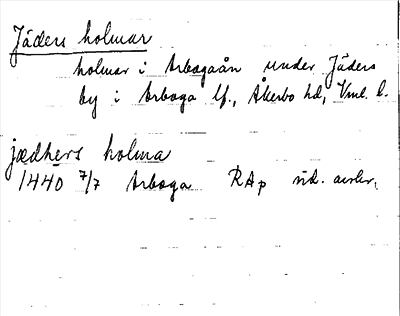 Jäders holmar
holmar i Arbogaån under Jäders
by i Arboga lf., Åkerbo hd, Vml. l.
jædhers holma
1440 7/7 Arboga RAp vid. avskr.